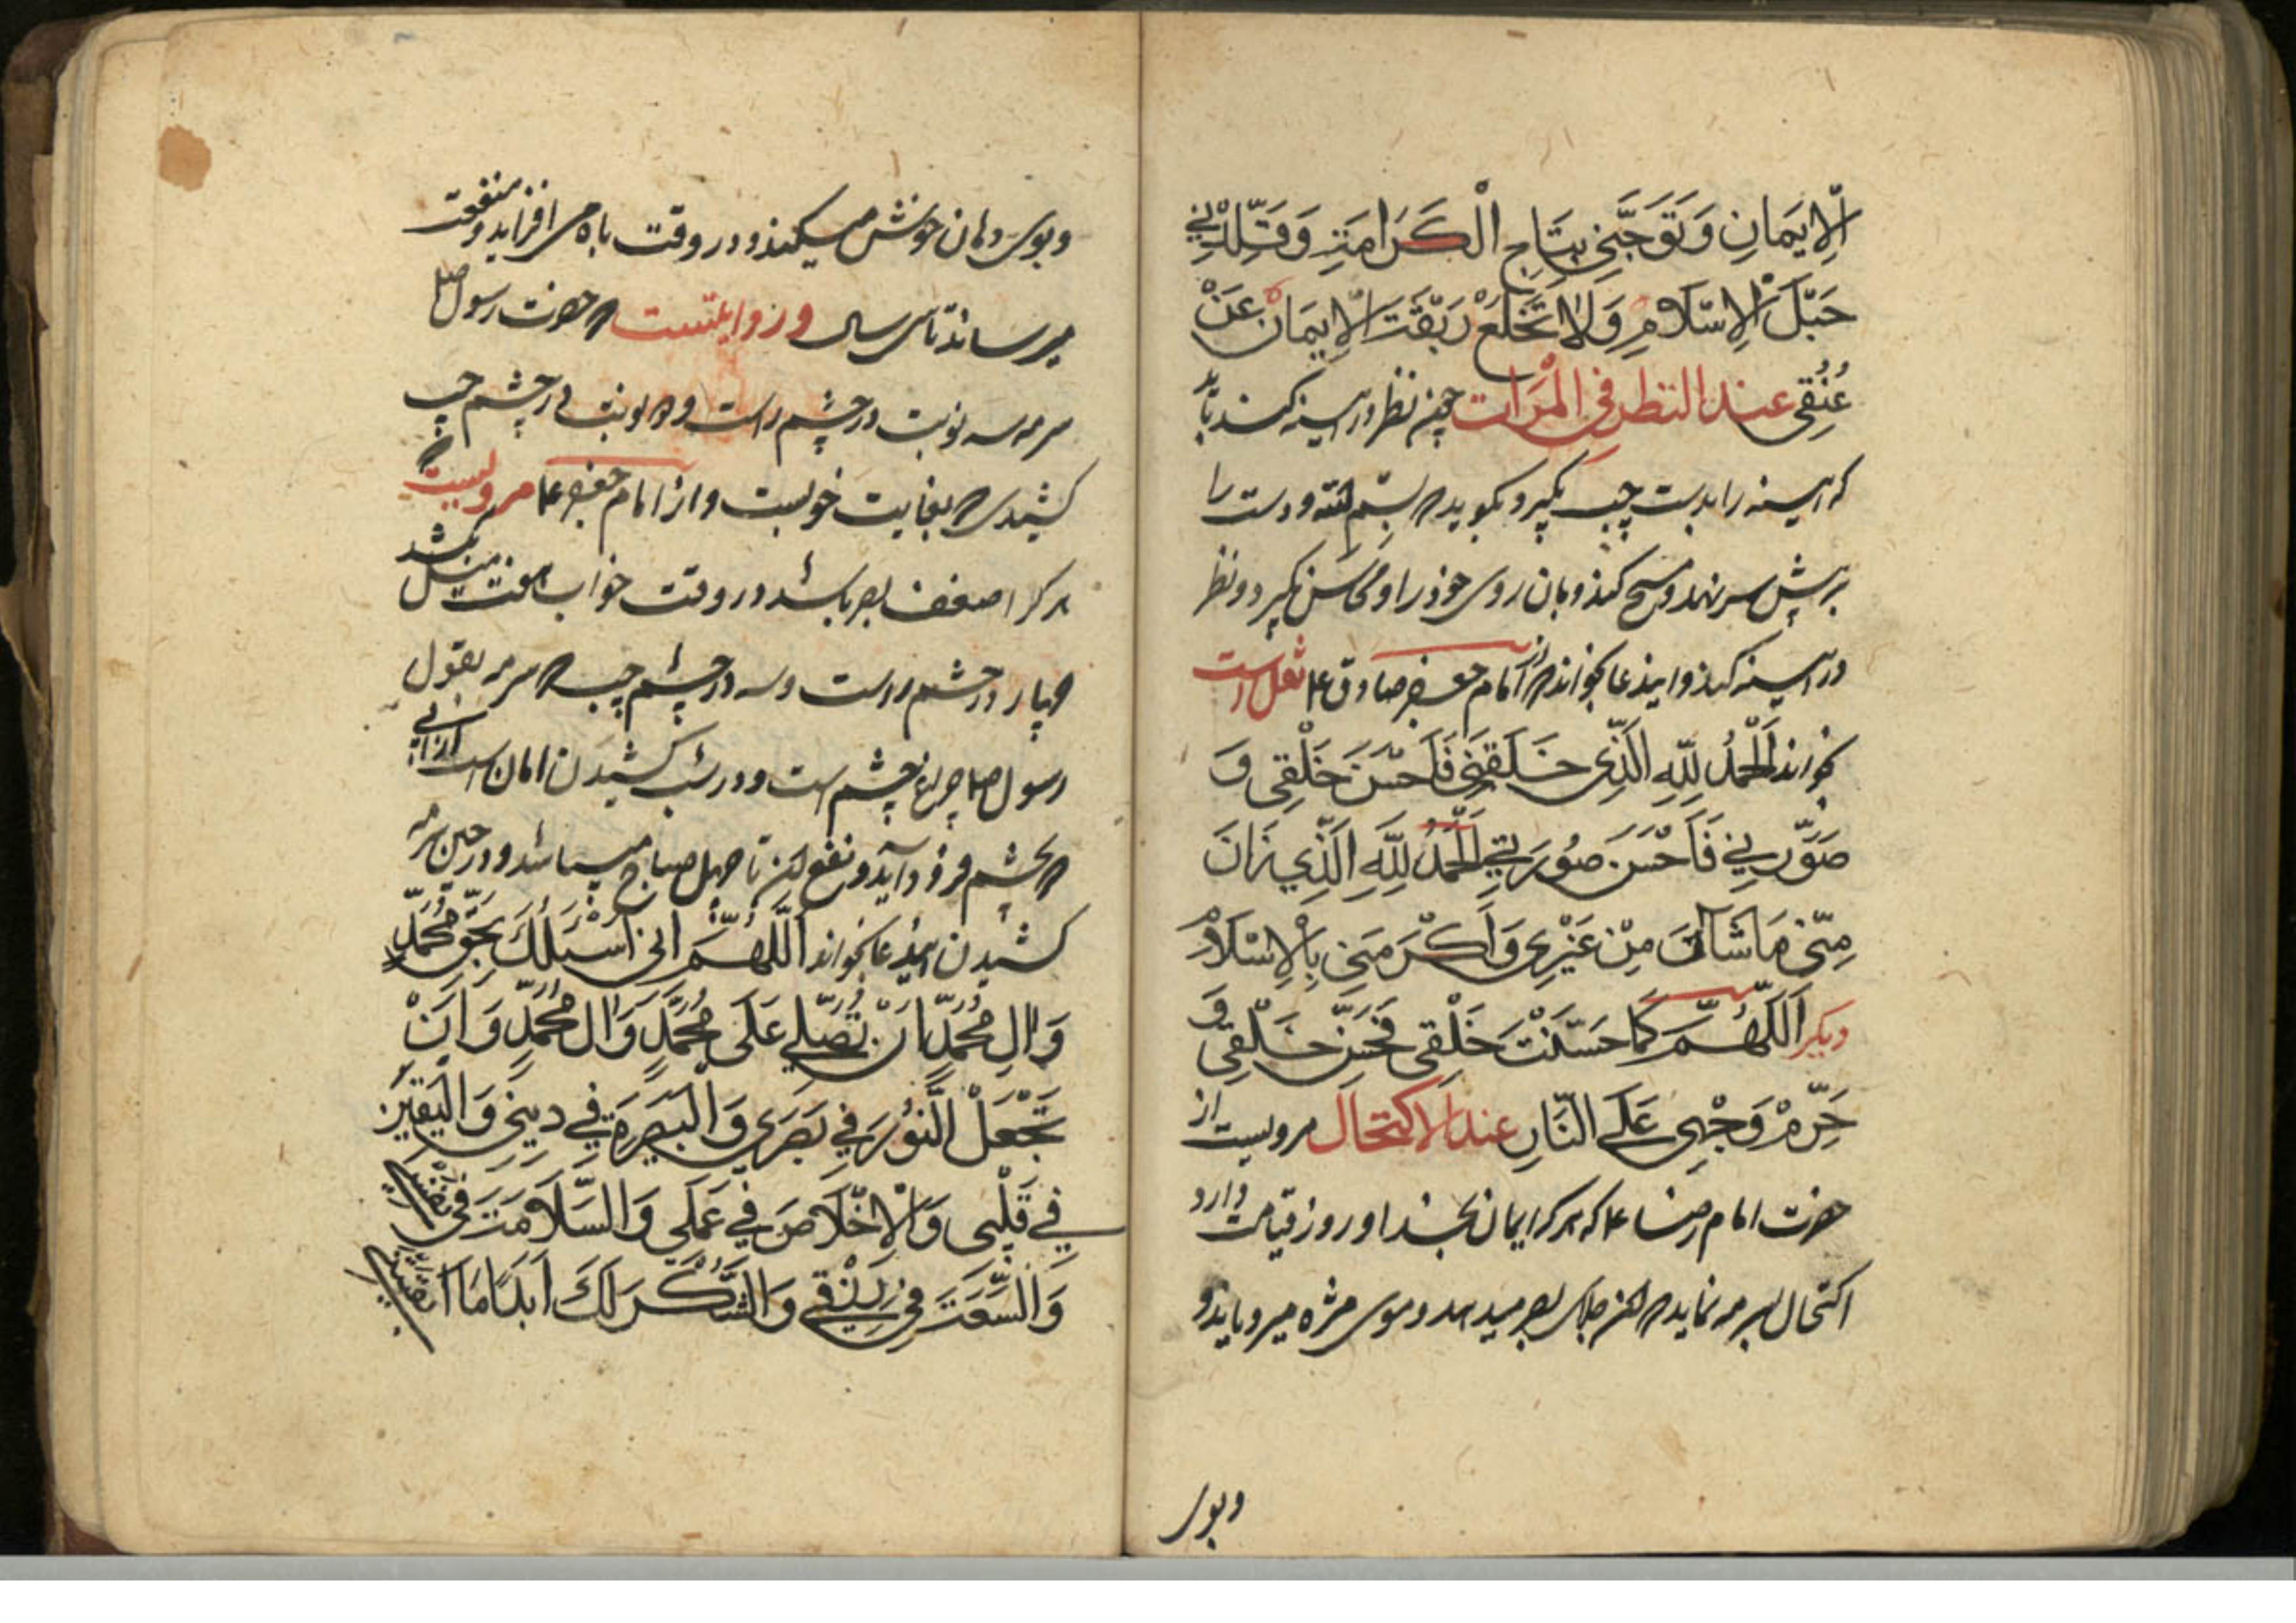 اَلْاِيمَانِ وَتَوِّجْنِي بِتَاجِ الْكَرَامَتِ وَقَلِّدْنِي
حَبْلَ الْاِسْلَامِ وَلَا تَخْلَعْ رَبْقَتَ الْاِيمَانِ عَنْ
عُنُقِي عند النظر فی المرات چون نظر در آیینه کند باید
که آیینه را بدست چپ بگیرد و بگوید بسم الله و دست را
بر پیش سر نهد و مسح کند و بان روی خود را و محاسن بگیرد و نظر
در آیینه کند و ایندعا بخواند از امام جعفر صادق ع نقل است
بخواند اَلْحَمْدُ لِلّٰهِ الَّذِي خَلَقَنِي فَاَحْسَنَ خَلْقِي وَ
صَوَّرَنِي فَاَحْسَنَ صُورَتِي اَلْحَمْدُ لِلّٰهِ الَّذِي زَانَ
مِنِّي مَا شَانَ مِنْ غَيْرِي وَاَكْرَمَنِي بِالْاِسْلَامِ
دیگر اَللّٰهُمَّ كَمَا حَسَّنْتَ خَلْقِي فَحَسِّنْ خُلْقِي وَ
حَرِّمْ وَجْهِي عَلَى النَّارِ عند الاکتحال مرویست از
حضرت امام رضا ع که هر که ایمان بخدا و روز قیامت دارد
اکتحال بسرمه نماید جلای بصر میدهد و موی مژه میرویاند و
و بوی
و بوی دهان خوش میکند و در وقت باه می افزاید و منفعت
میرساند تا سی سال و روایتست حضرت رسول صلعم
سرمه سه نوبت در چشم راست و دو نوبت در چشم چپ
کشیدی بغایت خوبست و از امام جعفر ع مرویست
هر کرا ضعف بصر باشد در وقت خواب هفت میل بکشد
چهار در چشم راست و سه در چشم چپ سرمه بقول
رسول صلعم چراغ چشم است و در شب کشیدن امان است از آبی
بچشم فرود آید و نفع تا چهل صباح میباشد و در حین سرمه
کشیدن ایندعا بخواند اَللّٰهُمَّ اِنِّي اَسْئَلُكَ بِحَقِّ مُحَمَّدٍ
وَ اٰلِ مُحَمَّدٍ اَنْ تُصَلِّي عَلَى مُحَمَّدٍ وَ اٰلِ مُحَمَّدٍ وَ اَنْ
تَجْعَلَ النُّوْرَ فِي بَصَرِي وَ الْبَصِيْرَةَ فِي دِينِي وَ الْيَقِيْنَ
فِي قَلْبِي وَ الْاِخْلَاصَ فِي عَمَلِي وَ السَّلَامَتَ فِي نَفْسِي
وَ السَّعَتَ فِي رِزْقِي وَ الشُّكْرَ لَكَ اَبَدًا مَا اَبْقَيْتَنِي